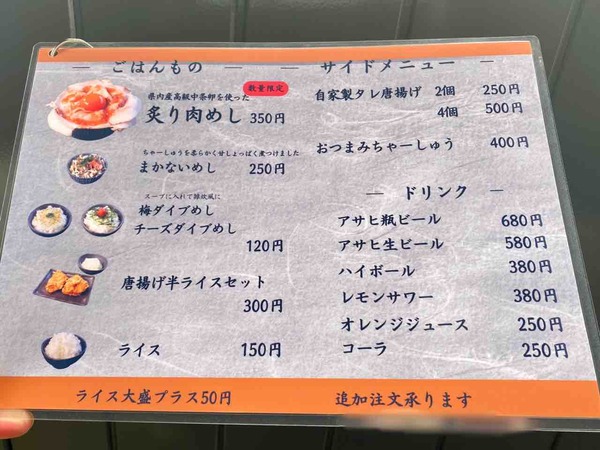 ごはんもの
数量限定
県内産高級中条卵を使った
炙り肉めし 350円
ちゃーしゅうを柔らかく甘しょっぱく煮つけました
まかないめし 250円
スープに入れて雑炊風に
梅ダイブめし
チーズダイブめし
120円
唐揚げ半ライスセット
300円
ライス 150円
ライス大盛プラス50円
サイドメニュー
自家製タレ唐揚げ 2個 250円
4個 500円
おつまみちゃーしゅう 400円
ドリンク
アサヒ瓶ビール 680円
アサヒ生ビール 580円
ハイボール 380円
レモンサワー 380円
オレンジジュース 250円
コーラ 250円
追加注文承ります